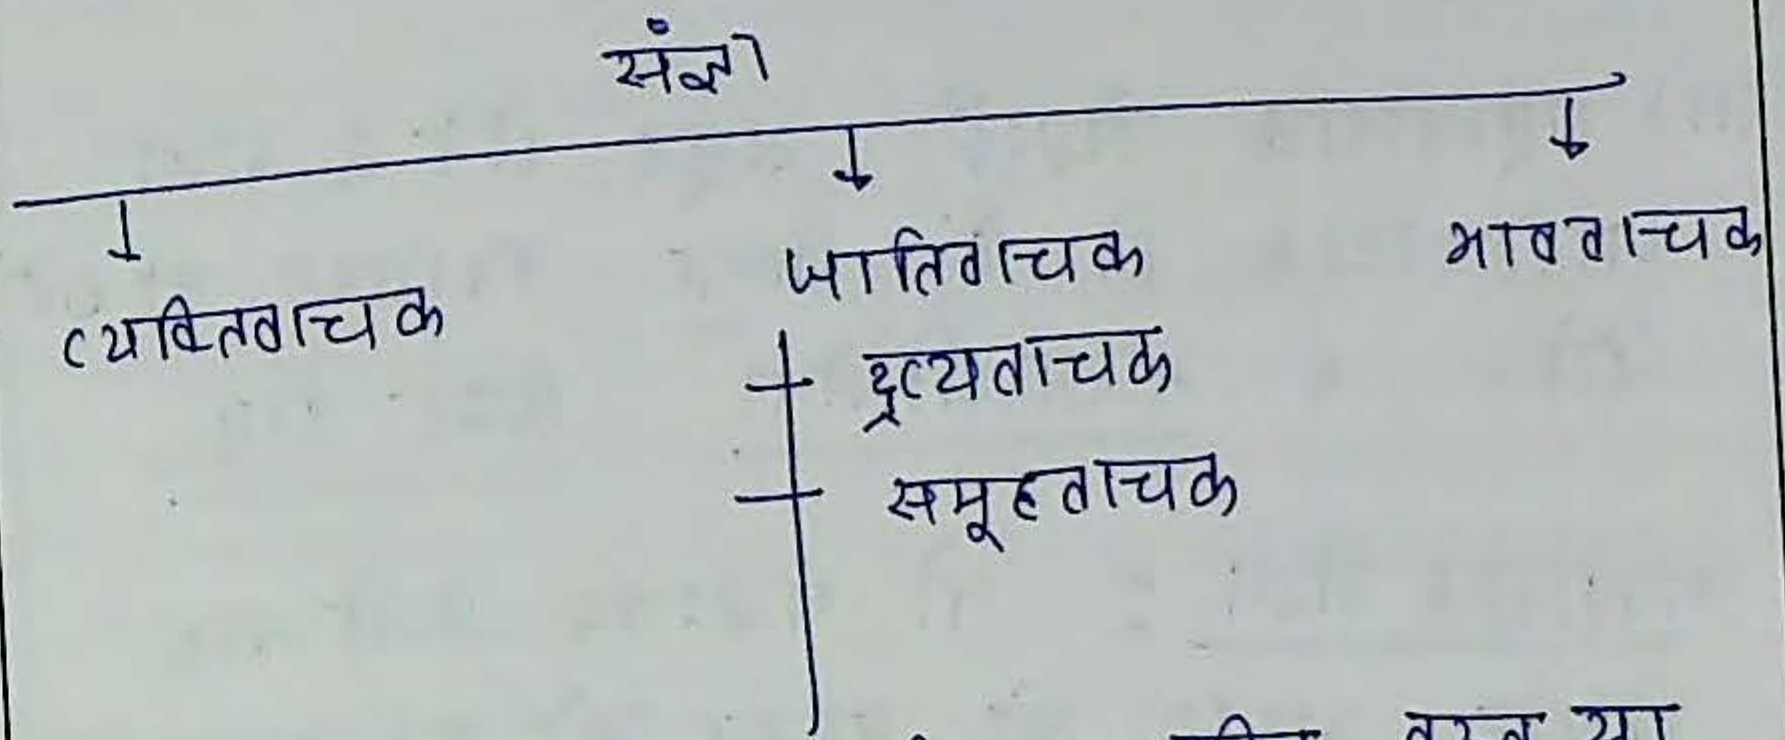 संज्ञा
व्यक्तिवाचक
जातिवाचक
भाववाचक
द्रव्यवाचक
समूहवाचक